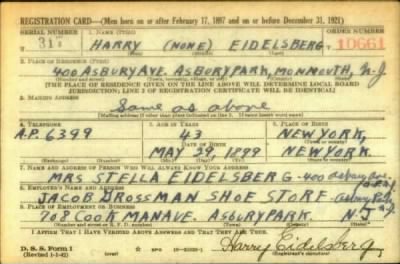 REGISTRATION CARD—(Men born on or after February 17, 1897 and on or before December 31, 1921)
SERIAL NUMBER 1. NAME (Print) ORDER NUMBER
31 HARRY (NONE) EIDELSBERG 10661
2. PLACE OF RESIDENCE (Print)
400 ASBURY AVE. ASBURY PARK, MONMOUTH, N-J
(Number and street) (Town, township, village, or city) (County) (State)
[THE PLACE OF RESIDENCE GIVEN ON THE LINE ABOVE WILL DETERMINE LOCAL BOARD
JURISDICTION; LINE 2 OF REGISTRATION CERTIFICATE WILL BE IDENTICAL]
3. MAILING ADDRESS
Same as above
[Mailing address if other than place indicated on line 2. If same insert word same]
4. TELEPHONE 5. AGE IN YEARS 6. PLACE OF BIRTH
A.P. 6399 43 NEW YORK,
DATE OF BIRTH (Town or county)
MAY 29 1899 NEW YORK
(Exchange) (Number) (Mo.) (Day) (Yr.) (State or country)
7. NAME AND ADDRESS OF PERSON WHO WILL ALWAYS KNOW YOUR ADDRESS
MRS STELLA EIDELSBERG - 400 asbury ave.
8. EMPLOYER'S NAME AND ADDRESS
JACOB GROSSMAN SHOE STORE
9. PLACE OF EMPLOYMENT OR BUSINESS
708 COOKMAN AVE. ASBURY PARK. N.J
(Number and street or R. F. D. number) (Town) (County) (State)
I AFFIRM THAT I HAVE VERIFIED ABOVE ANSWERS AND THAT THEY ARE TRUE.
D. S. S. Form 1
(Revised 1-1-42)
Harry Eidelsberg
(Registrant's signature)